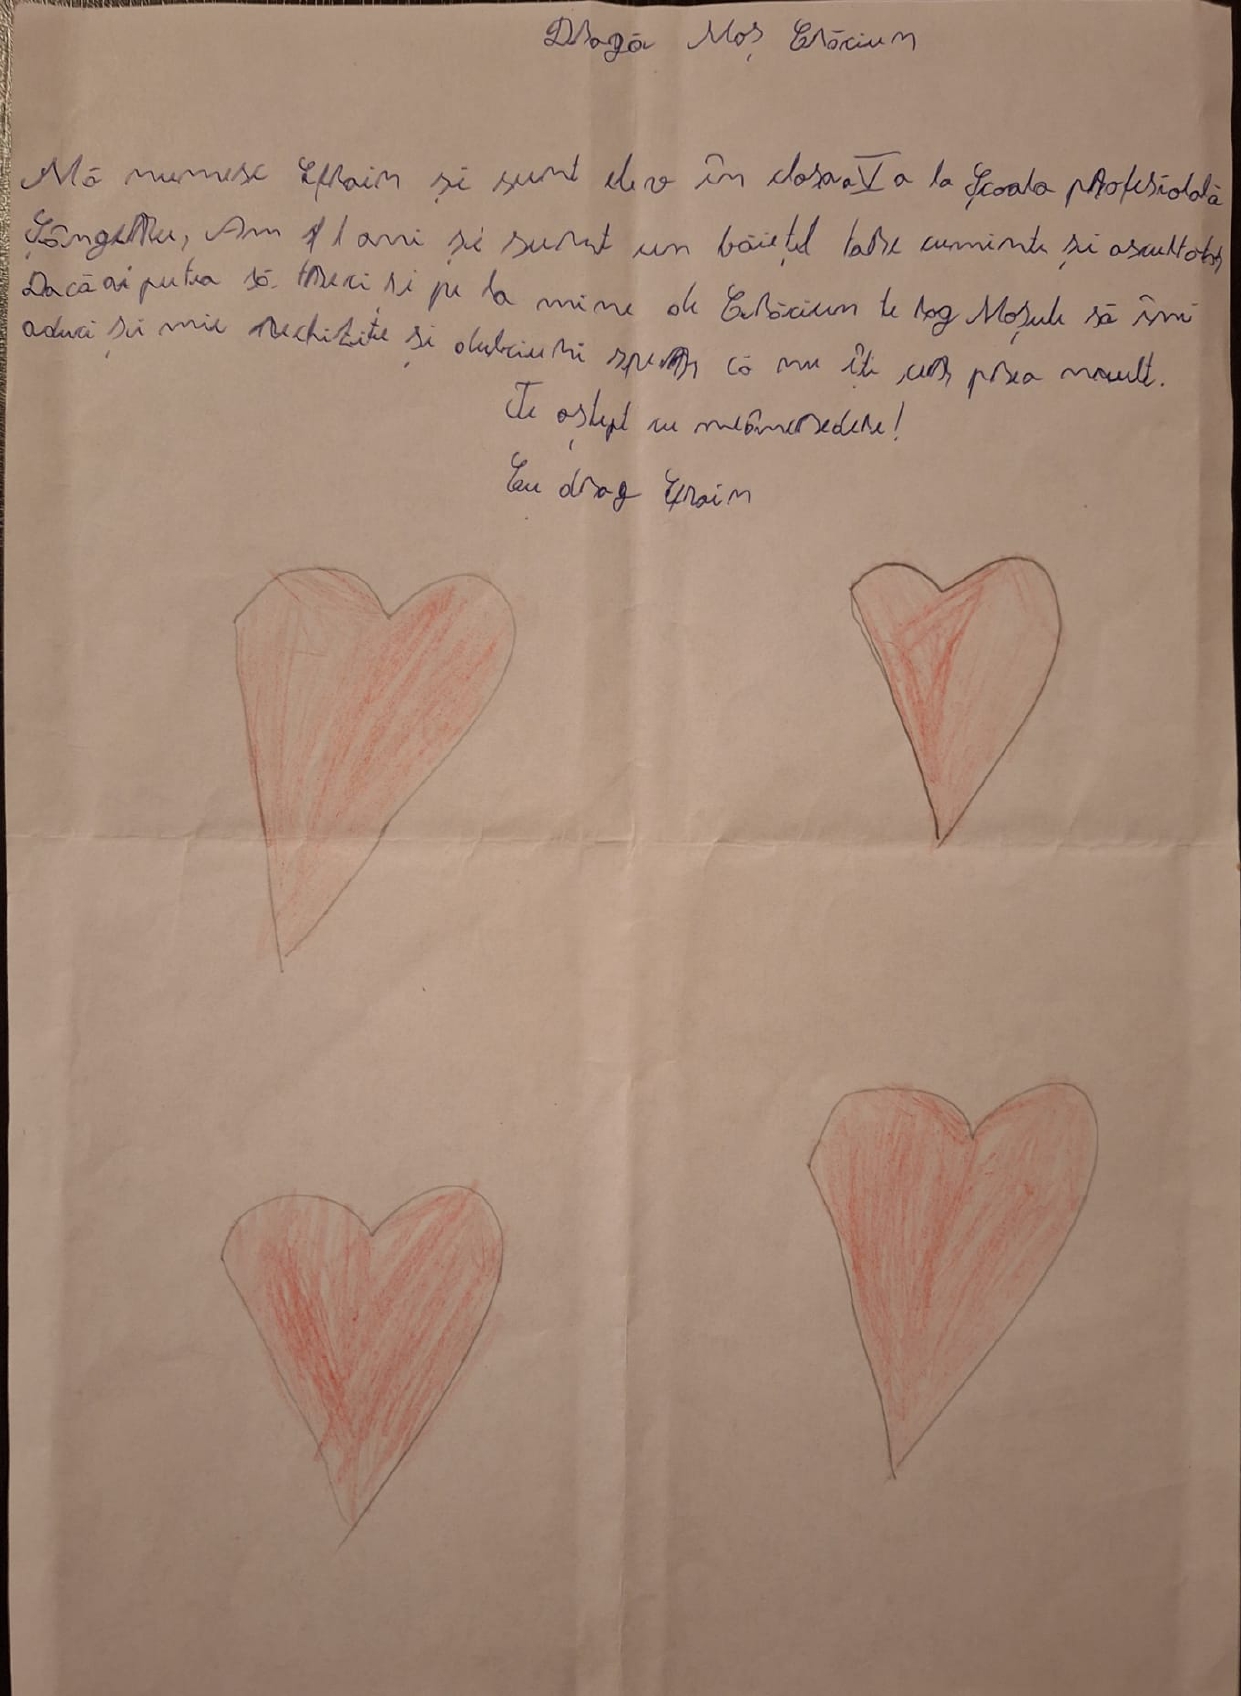 Dragă Moș Crăciun
Mă numesc Efraim și sunt elev în clasa a V a la Școala profesiolală
Sângătru, Am 11 ani și sunt un băiețel tare cuminte și ascultător
Dacă ai putea să treci și pe la mine de Crăciun te rog Moșule să îmi
aduci și mie rechizite și dulciuri sper că nu îți cer prea mult.
Te aștept cu nerăbdare!
Cu drag Efraim